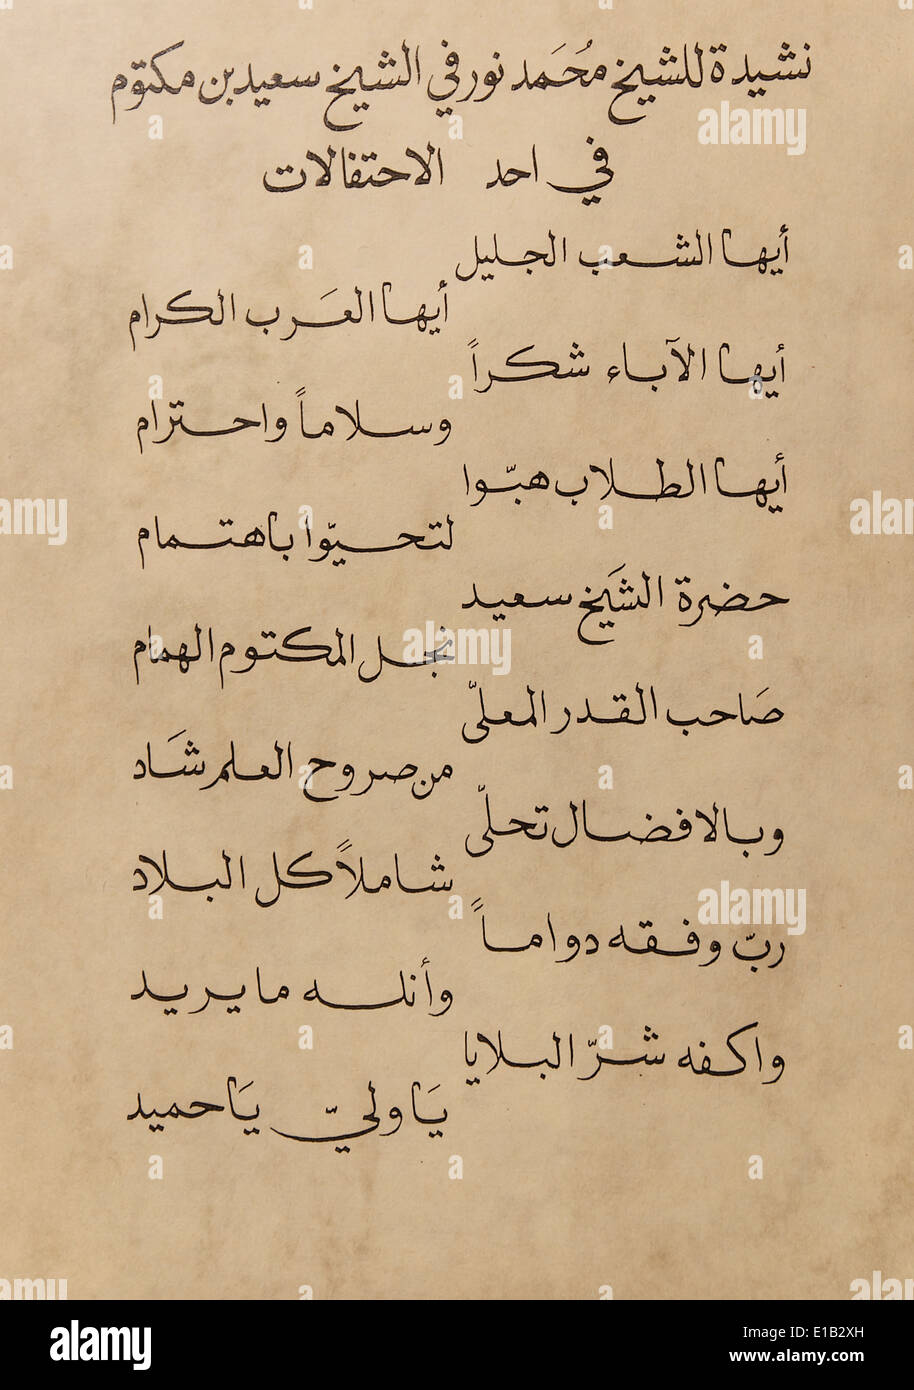 نشيدة للشيخ مُحَمد نور في الشيخ سعيد بن مكتوم
في احد الاحتفالات
أيها الشعب الجليل
أيها العَرب الكرام
أيها الآباء شكراً
وسلاماً واحترام
أيها الطلاب هبّوا
لتحيّوا باهتمام
حضرة الشَيخ سعيد
نجل المكتوم الهمام
صَاحب القدر المعلّى
من صروح العلم شَاد
وبالافضال تحلّى
شاملاً كل البلاد
ربّ وفقه دواماً
وأنله مايريد
واكفه شرّ البلايا
يَا وليّ يَا حميد
alamy
Image ID: E1B2XH
www.alamy.com